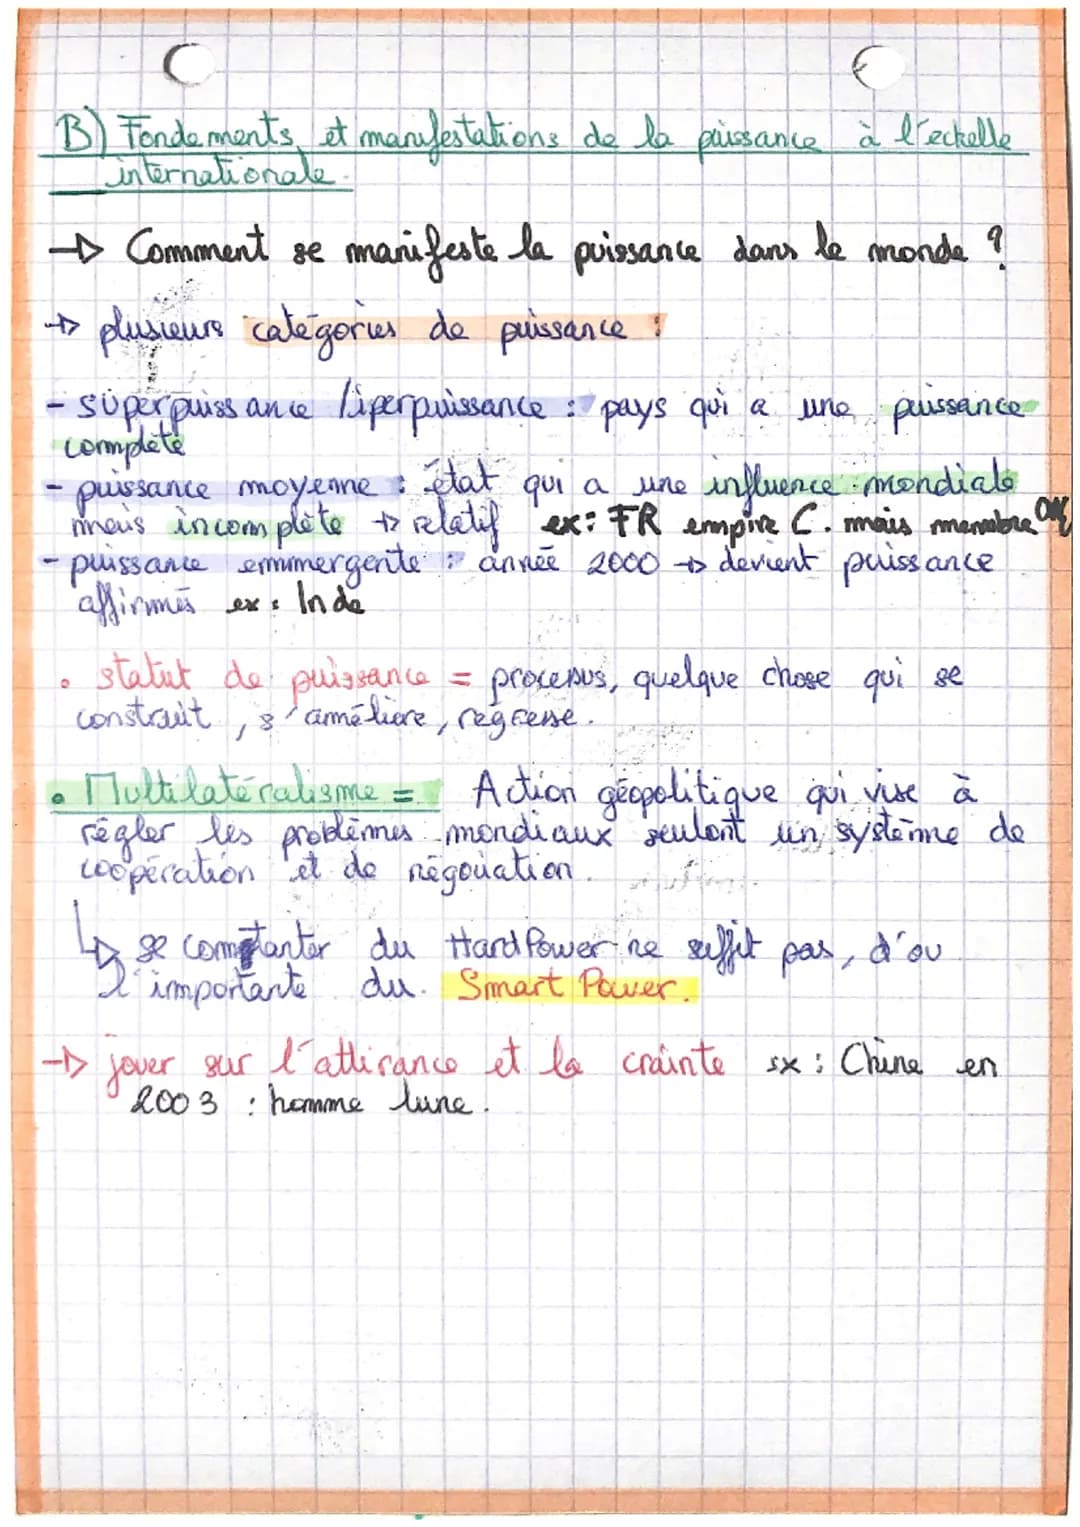 B) Fondements et manifestations de la puissance à l'eckelle
internationale.
→ Comment se manifeste la puissance dans le monde ?
→ plusieurs catégories de puissance :
- superpuissance / iperpuissance : pays qui a une puissance
complète
- puissance moyenne : état qui a une influence mondiale
mais incomplète → relatif ex : FR empire C. mais membre
- puissance emmergente : année 2000 → devient puissance
affirmés ex : Inde
• statut de puissance = processus, quelque chose qui se
construit, s'améliere, régresse.
• Multilatéralisme = Action géopolitique qui vise à
régler les problèmes mondiaux seulont un système de
coopération et de négociation.
↳ se comtanter du Hard Power ne suffit pas, d'ou
l'importante du Smart Power.
→ jouer sur l'attirance et la crainte sx : Chine en
2003 : homme lune.